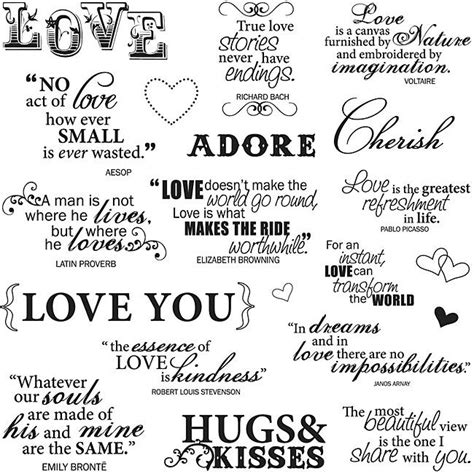 LOVE
True love
stories
never have
endings.
RICHARD BACH
Love
is a canvas
furnished by Nature
and embroidered by
imagination.
VOLTAIRE
"NO
act of love
how ever
SMALL
is ever wasted."
AESOP
ADORE
Cherish
A man is not
where he lives,
but where
he loves.
LATIN PROVERB
"LOVE doesn't make the
world go round,
Love is what
MAKES THE RIDE
worthwhile."
ELIZABETH BROWNING
Love is the greatest
refreshment
in life.
PABLO PICASSO
For an
instant,
LOVE can
transform
the WORLD
{LOVE YOU}
the essence of
LOVE is kindness"
ROBERT LOUIS STEVENSON
"In dreams
and in
love there are no
impossibilities."
JANOS ARNAY
"Whatever
our souls
are made of
his and mine
are the SAME."
EMILY BRONTË
HUGS&
KISSES
The most
beautiful view
is the one I
share with you